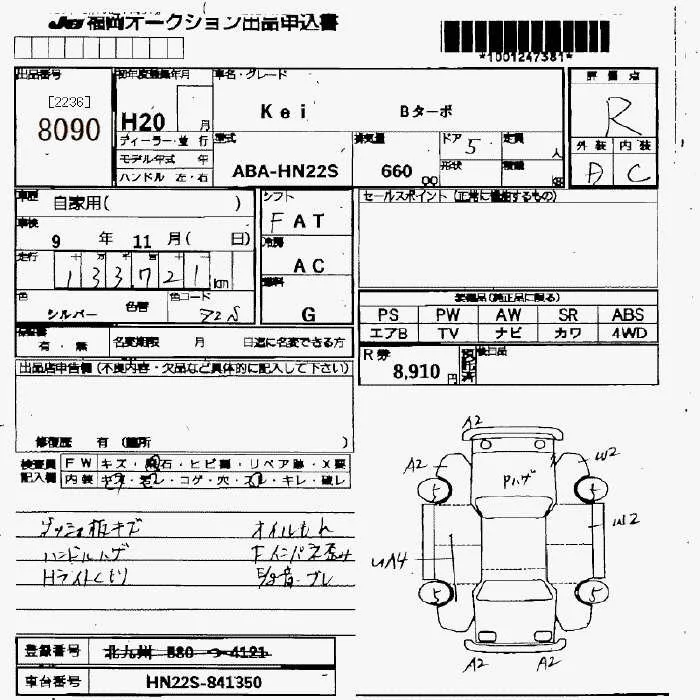 JU福岡オークション出品申込書
*1001247381*
出品番号
[2236]
8090
初年度登録年月
H20 月
ディーラー・並 行
モデル年式 年
ハンドル 左・右
車名・グレード
Kei Bターボ
型式
ABA-HN22S
排気量
660 00
ドア 5
形状
定員 人
積載 kg
評価点
R
外装 内装
D C
車歴
自家用( )
車検
9 年 11 月( 日)
走行
133721 km
色
シルバー 色替
色コード
Z2S
シフト
F AT
冷房
AC
燃料
G
セールスポイント (正常に機能するもの)
装備品(純正品に限る)
PS PW AW SR ABS
エアB TV ナビ カワ 4WD
有・無
名変期限 月 日迄に名変できる方
R券
8,910 円
後日品
出品店申告欄 (不良内容・欠品など具体的に記入して下さい)
修復歴 有 (箇所 )
検査員記入欄
FW キズ・飛石・ヒビ割・リペア跡・X要
内装 キズ・汚レ・コゲ・穴・スレ・キレ・破レ
ダッシュ板キズ
オイルもれ
ハンドルハゲ
Fインパネ歪み
Hライトくもり
A2
A2
W2
Pハゲ
5
5
W2
UA4
5
5
A2
A2
登録番号
北九州 580 つ 4121
車台番号
HN22S-841350